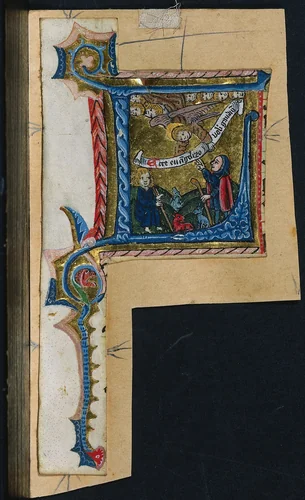 Ecce euangelizo
vobis gaudiu